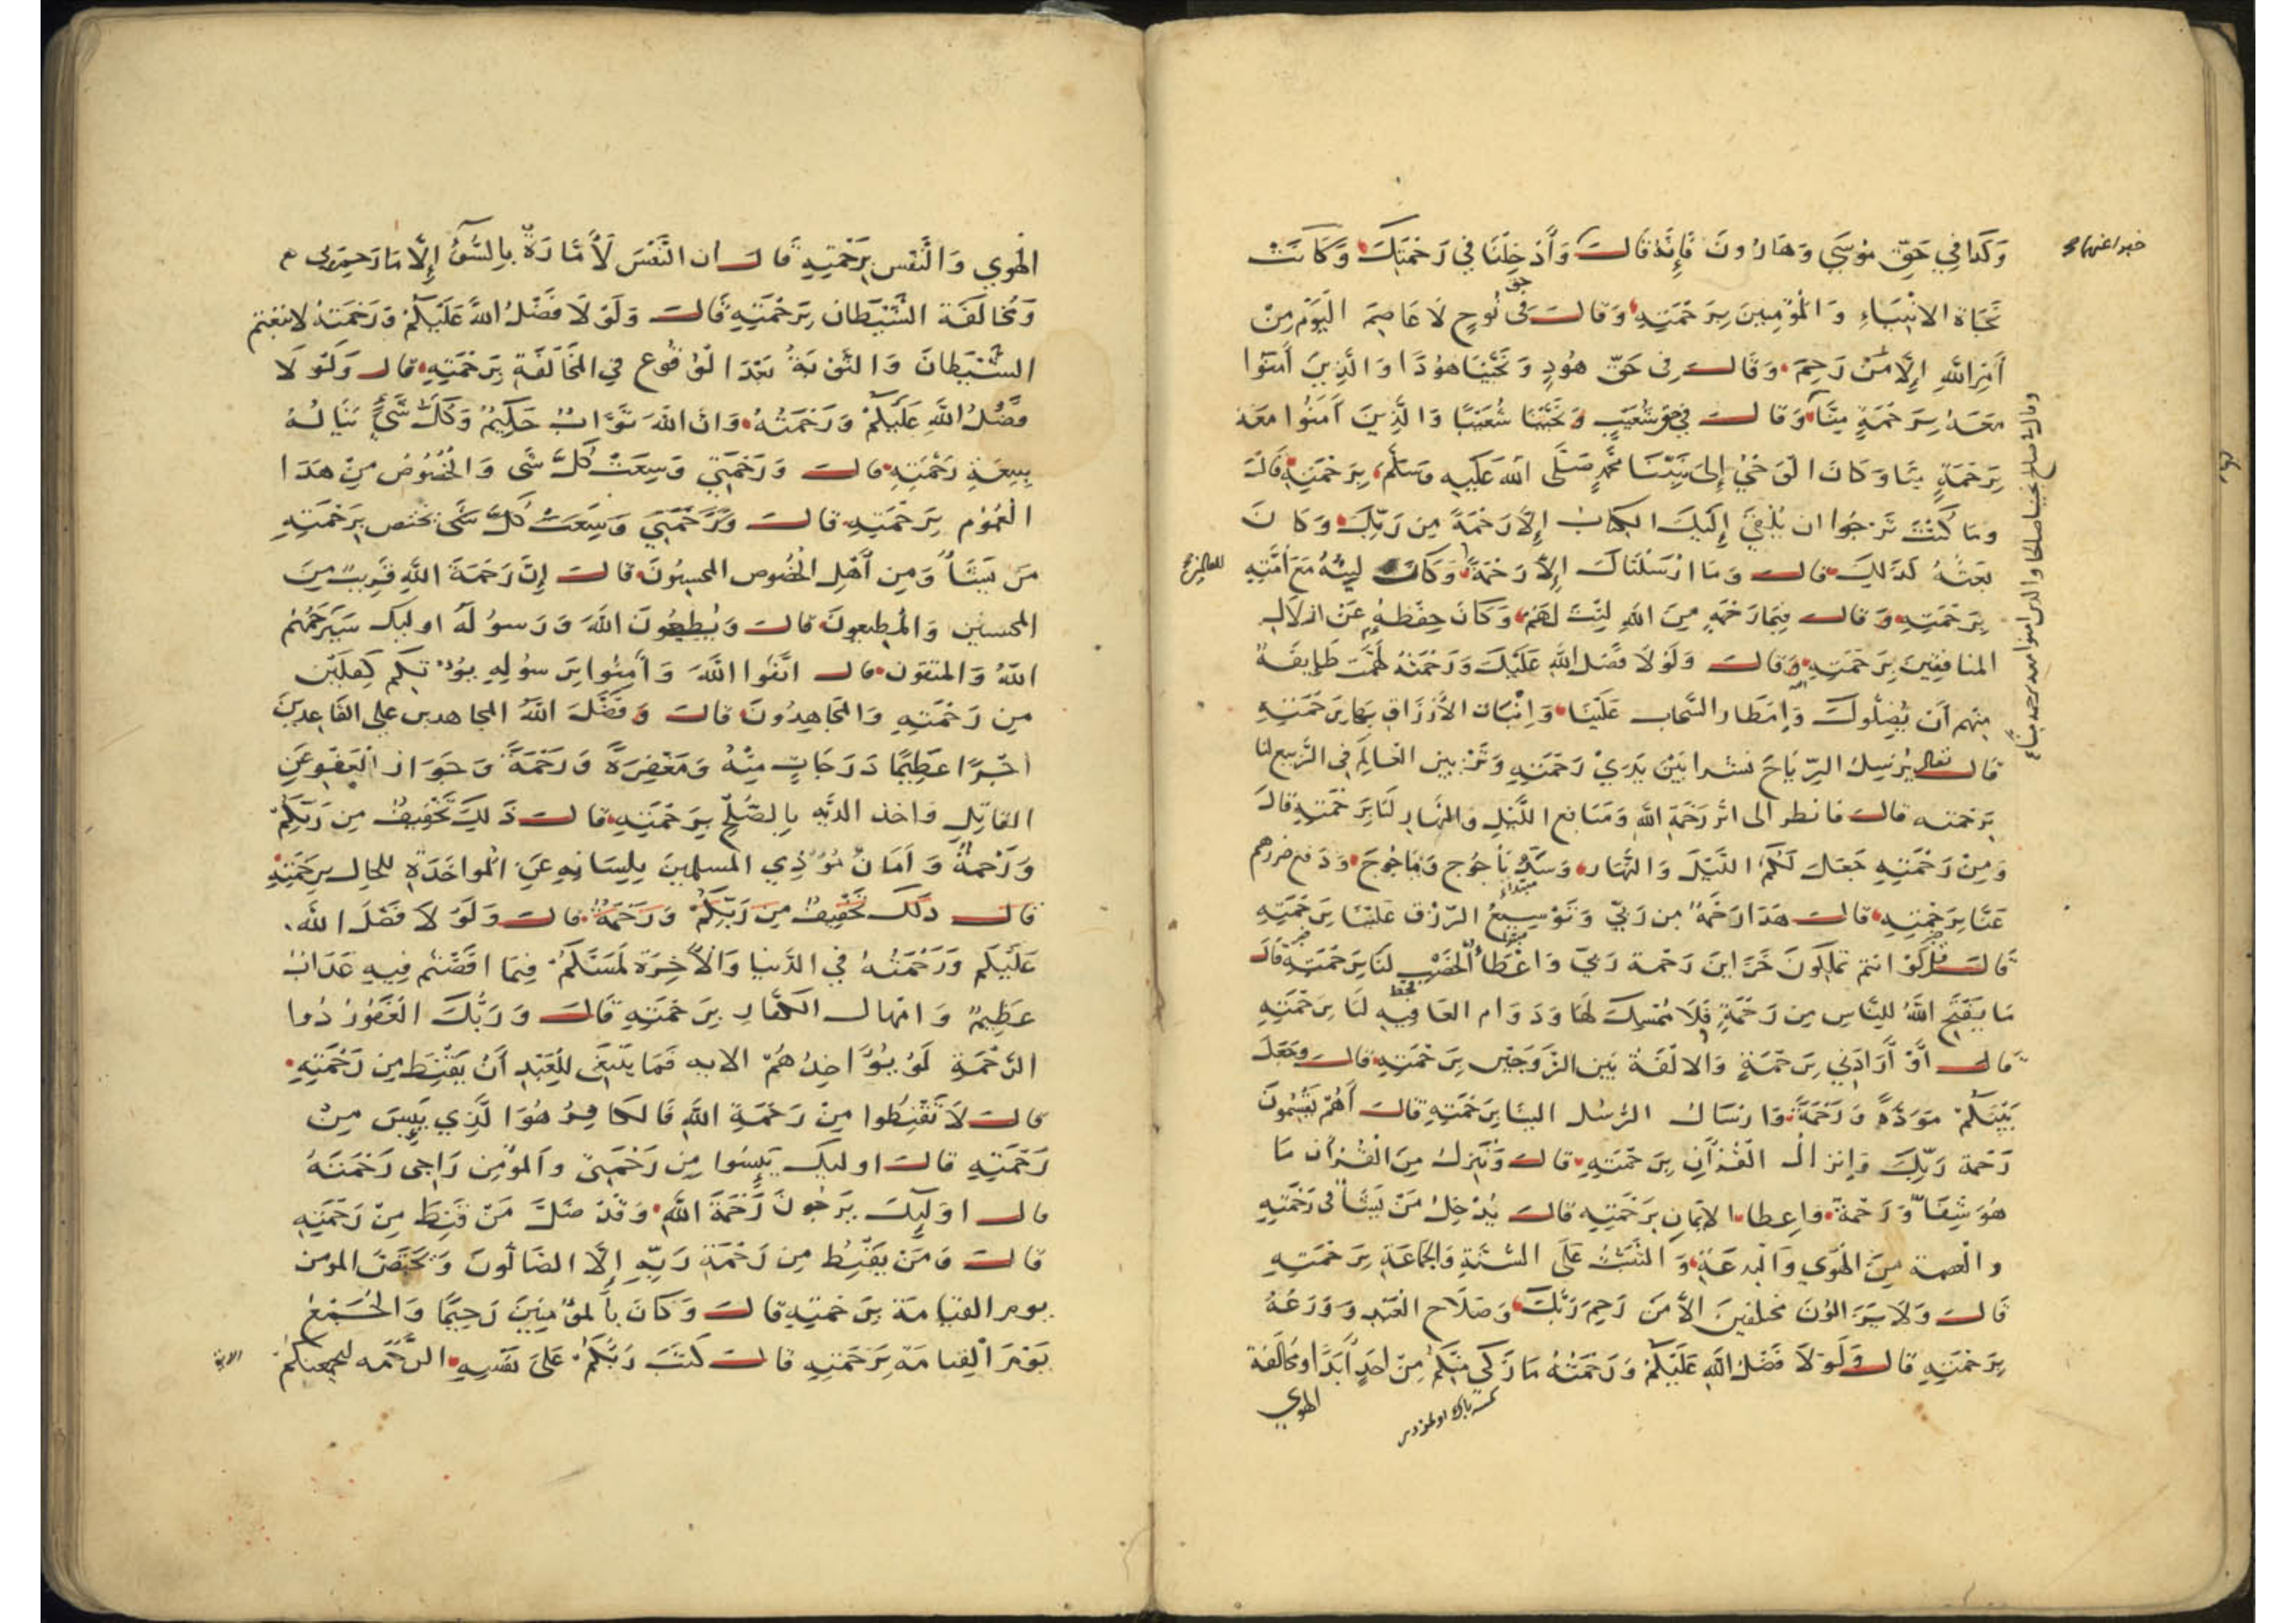 وَكَذا في حَقِّ مُوسَى وَهَارُونَ فَإِنَّهُ قالَ وَأَدْخِلْنَا في رَحْمَتِكَ وَكَانَتْ
خبرا عنهما
نَجَاة الانْبِيَاءِ وَالْمُؤْمِنِينَ بِرَحْمَتِهِ وَقالَ في حق نُوحٍ لَا عَاصِمَ الْيَوْمَ مِنْ
أَمْرِ اللَّهِ إِلَّا مَنْ رَحِمَ وَقَالَ في حَقِّ هُودٍ وَنَجَّيْنَا هُودًا وَالَّذِينَ آمَنُوا
مَعَهُ بِرَحْمَةٍ مِنَّا وَقالَ في حق شُعَيْبٍ وَنَجَّيْنَا شُعَيْبًا وَالَّذِينَ آمَنُوا مَعَهُ
وقال في صالح نجينا صالحا والذين امنوا معه برحمة منا
بِرَحْمَةٍ مِنَّا وَكَانَ الْوَحْيُ إِلَى سَيِّدِنَا مُحَمَّدٍ صَلَّى اللهُ عَلَيْهِ وَسَلَّمَ بِرَحْمَتِهِ قَالَ
وَمَا كُنْتَ تَرْجُوا ان يُلْقَى إِلَيْكَ الكِتَابُ إِلَّا رَحْمَةً مِن رَبِّكَ وَكَانَ
بَعْثُهُ كَذَلِكَ قال وَمَا ارْسَلْنَاكَ إِلَّا رَحْمَةً وَكَانَ لِينُهُ مَعَ أُمَّتِهِ
للعالمين
بِرَحْمَتِهِ وَقال فِيمَا رَحْمَةٍ مِنَ اللهِ لِنْتَ لَهُمْ وَكَانَ حِفظهُ عَنْ ازلَال
المنافقينَ بِرَحْمَتِهِ وَقال وَلَوْلَا فَضْلُ اللهِ عَلَيْكَ وَرَحْمَتُهُ لَهَمَّتْ طَايِفَةٌ
مِنْهُم أَنْ يُضِلُّوكَ وَامْطَار السَّحاب عَلَيْنَا وَانْبَات الأَرْزَاقِ بِهَا بِرَحْمَتِهِ
قال تعالى يُرْسِلُ الرِّيَاحَ نشرا بَيْنَ يَدَيْ رَحْمَتِهِ وَتَزْيين العَالَمِ في الرَّبيع لنا
بِرَحْمَته قال فانظر الى اثر رَحْمَةِ اللهِ وَمَنَافع اللَّيْلِ والنَّهَارِ لَنَا بِرَحْمَتِهِ قَالَ
وَمِنْ رَحْمَتِهِ جَعَلَ لَكُمُ اللَّيْلَ وَالنَّهَارَ وَسَدُّ يَأْجُوج وَمَاجُوجَ وَدَفع ضررهم
عَنَّا بِرَحْمَتِهِ قالَ هَذَا رَحْمَةٌ مِن رَبِّي وَتَوْسِيعُ الرِّزْقِ عَلَيْنَا بِرَحْمَتِهِ
مبتداء
قَالَ قل لَوْ انتم تَمْلِكُونَ خَزَاينَ رَحْمَة رَبِّي وَاعْطَاءُ الْخَصْبِ لَنَا بِرَحْمَتِهِ قَالَ
مَا يَفْتَحِ اللهُ لِلنَّاسِ مِن رَحْمَةٍ فَلَا مُمْسِكَ لَهَا وَدَوَام العَافِيَةِ لَنَا بِرَحْمَتِهِ
قَالَ أَوْ أَرَادَنِي بِرَحْمَةٍ وَالالْفَة بَيْن الزَّوْجَيْن بِرَحْمَتِهِ قال وجَعَلَ
بَيْنَكُمْ مَوَدَّةً وَرَحْمَةً وَارْسَالُ الرُّسُل الينَا بِرَحْمَتِهِ قال أَهُمْ يَقْسِمُونَ
رَحْمَة رَبِّكَ وَإِنزالُ الْقُرْآنِ بِرَحْمَتِهِ قال وَنُنَزِّلُ مِنَ الْقُرْآنِ مَا
هُوَ شِفَاءٌ وَرَحْمَةٌ وَاعطاء الايمَانِ بِرَحْمَتِهِ قال يُدْخِلُ مَنْ يَشَاءُ في رَحْمَتِهِ
والعصمة مِنَ الْهَوَى وَالْبِدعَةِ وَالتثبّتُ عَلَى السُّنَّةِ وَالجمَاعَةِ بِرَحْمَتِهِ
قال وَلَا يَزَالُونَ مختلِفينَ الّا مَنْ رَحِمَ رَبُّكَ وَصَلَاح الْعَبْدِ وَوَرَعُهُ
بِرَحْمَتِهِ قال وَلَوْلَا فَضْلُ اللهِ عَلَيْكُمْ وَرَحْمَتُهُ مَا زَكَى مِنْكُمْ مِنْ احَدٍ أَبَدًا ومخالَفة
الهوي
الْهَوي وَالنَّفْسِ بِرَحْمَتِهِ قَالَ ان النَّفْسَ لَأَمَّارَةٌ بِالسُّوءِ إِلَّا مَا رَحِمَ رَبِّي
وَمُخَالَفَة الشَّيْطَان بِرَحْمَتِهِ قَالَ وَلَوْلَا فَضْلُ اللهِ عَلَيْكُمْ وَرَحْمَتهُ لاتبعتم
الشَّيْطَانَ وَالتَّوْبَةُ بَعْدَ الْوُقُوع في المُخَالَفَةِ بِرَحْمَتِهِ قال وَلَوْلَا
فَضْلُ اللهِ عَلَيْكُمْ وَرَحْمَتُهُ وَانَّ اللهَ تَوَّابٌ حَكِيمٌ وَكُلُّ شَيْءٍ يَنَالُهُ
بِسِعَةِ رَحْمَتِهِ قالَ وَرَحْمَتِي وَسِعَتْ كُلَّ شَى وَالخُصُوصُ مِنْ هَذَا
الْعُمُوْم بِرَحْمَتِهِ قالَ وَرَحْمَتِي وَسِعَتْ كُلَّ شَى يختص بِرَحْمَتِهِ
مَن يَشَاءُ وَمِن أَهْلِ الخُصُوص المحسِنُونَ قالَ إِنَّ رَحْمَةَ اللهِ قَرِيبٌ مِنَ
المحسنين وَالْمطيعونَ قالَ وَيُطِيعُونَ اللهَ وَرَسُولَهُ اوليك سَيَرْحَمُهُمُ
اللهُ وَالمتقون قالَ اتَّقُوا اللهَ وَآمِنُوا بِرَسُولِهِ يُؤْتِكُم كِفْلَيْنِ
مِن رَحْمَتِهِ وَالمجَاهِدُونَ قالَ وَفَضَّلَ اللهُ المجاهدين على القَاعِدِينَ
اجْرًا عَظِيمًا دَرَجَاتٍ مِنْهُ وَمَغْفِرَةً وَرَحْمَةً وَجَوَاز الْعَفْو عَنِ
القَاتِلِ واخذ الدية بِالصُّلْحِ بِرَحْمَتِهِ قال ذَلِكَ تَخْفِيفٌ مِن رَبِّكُمْ
وَرَحْمَةٌ وَأَمَانُ مُؤْذِي المسلمينَ بِلِسَانِهِ عَنِ الْمواخَذَةِ للحال بِرَحْمَتِهِ
قال ذلكَ تَخْفِيفٌ مِن رَبِّكُمْ وَرَحْمَةٌ قال وَلَوْلَا فَضْلُ الله
عَلَيْكُم وَرَحْمَتُهُ في الدُّنيَا وَالْآخِرَة لَمَسَّكُمْ فِيمَا افَضْتُم فِيهِ عَذَابٌ
عَظِيمٌ وَامْهال الكفَّارِ بِرَحْمَتِهِ قَالَ وَرَبُّكَ الْغَفُورُ ذُوا
الرَّحْمَةِ لَوْ يُؤَاخِذُهُمْ الايه فَمَا يَنْبَغِي لِلْعَبْدِ أَنْ يَقْنَطَ مِن رَحْمَتِهِ
قال لَا تَقْنَطُوا مِنْ رَحْمَةِ اللهِ فَالكَافِرُ هُوَ الَّذِي يَيِسَ مِنْ
رَحْمَتِهِ قال اوليك يَيِسُوا مِن رَحْمَتِي والمؤمِن رَاجي رَحْمَتَهُ
قال اوَلَيِكَ يَرْجُونَ رَحْمَةَ اللهِ وَقَدْ ضَلَّ مَنْ قَنَطَ مِنْ رَحْمَتِهِ
قال وَمَنْ يَقْنَطُ مِن رَحْمَةِ رَبِّهِ إِلَّا الضَّالُّونَ وَيختَصُّ المومن
يوم القيَامَة بِرَحْمَتِهِ قال وَكَانَ بِالْمُؤْمِنِينَ رَحِيمًا وَالجَمْعُ
يَوْمَ الْقِيامَة بِرَحْمَتِهِ قال كَتَبَ رَبُّكُمْ عَلَى نَفْسِهِ الرَّحْمَه ليجمعنكُمْ
الاية